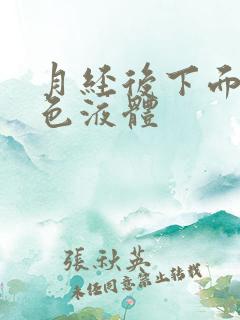 月経後下而
色液體
張秋英
未任同意禁止转载